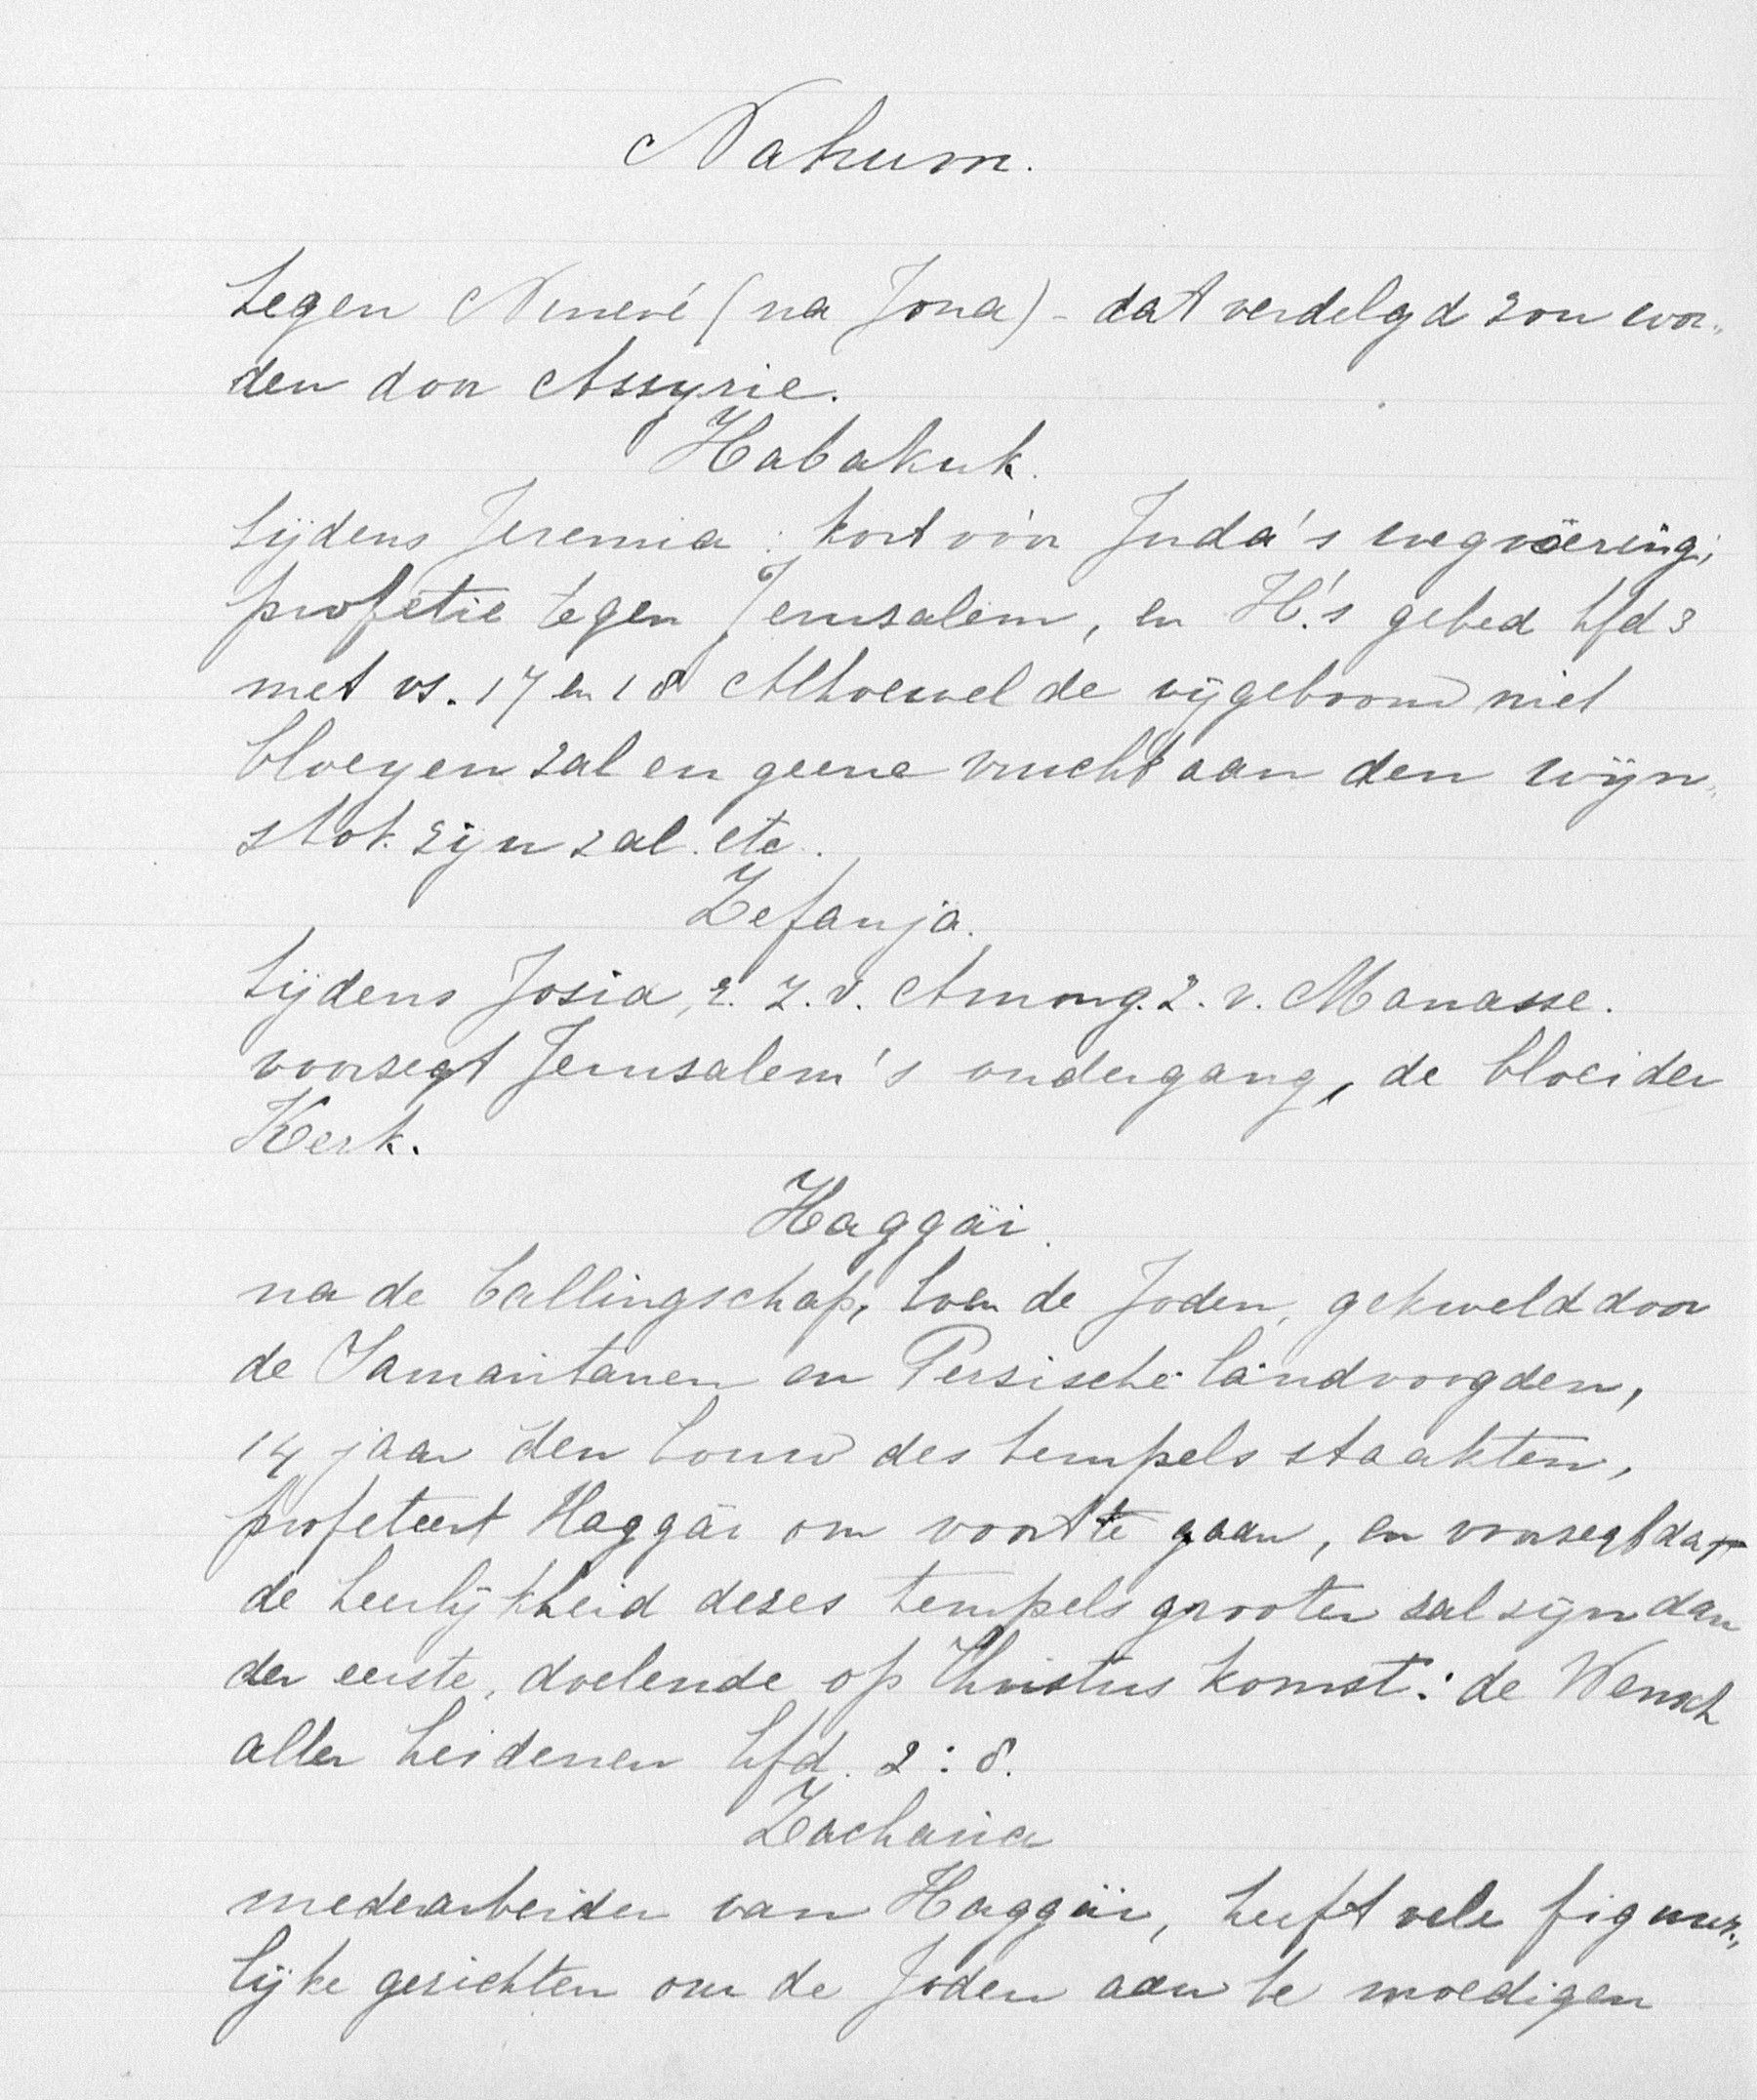 Nahum.
tegen Ninevé (na Jona) - dat verdelgd zou wor„
den door Assyrie.
Habakuk.
tijdens Jeremia : kort vóór Juda's wegvoering;
profetie tegen Jerusalem, en H.'s gebed hfd 3
met vs. 17 en 18 Alhoewel de vijgeboom niet
bloeyen zal en geene vrucht aan den wijn„
stok zijn zal. etc.
Zefanja.
tijdens Josia, z. v. Amon z. v. Manasse.
voorzegt Jerusalem's ondergang, de bloei der
Kerk.
Haggäi.
na de ballingschap, toen de Joden, gekweld door
de Samaritanen en Persische landvoogden,
14 jaar den bouw des tempels staakten,
profeteert Haggäi om voort te gaan, en voorzegt dat
de heerlijkheid dezes tempels grooter zal zijn dan
der eerste, doelende op Christus komst: de Wensch
aller heidenen hfd. 2:8.
Zacharia
medearbeider van Haggäi, heeft vele figuur„
lijke gezichten om de Joden aan te moedigen